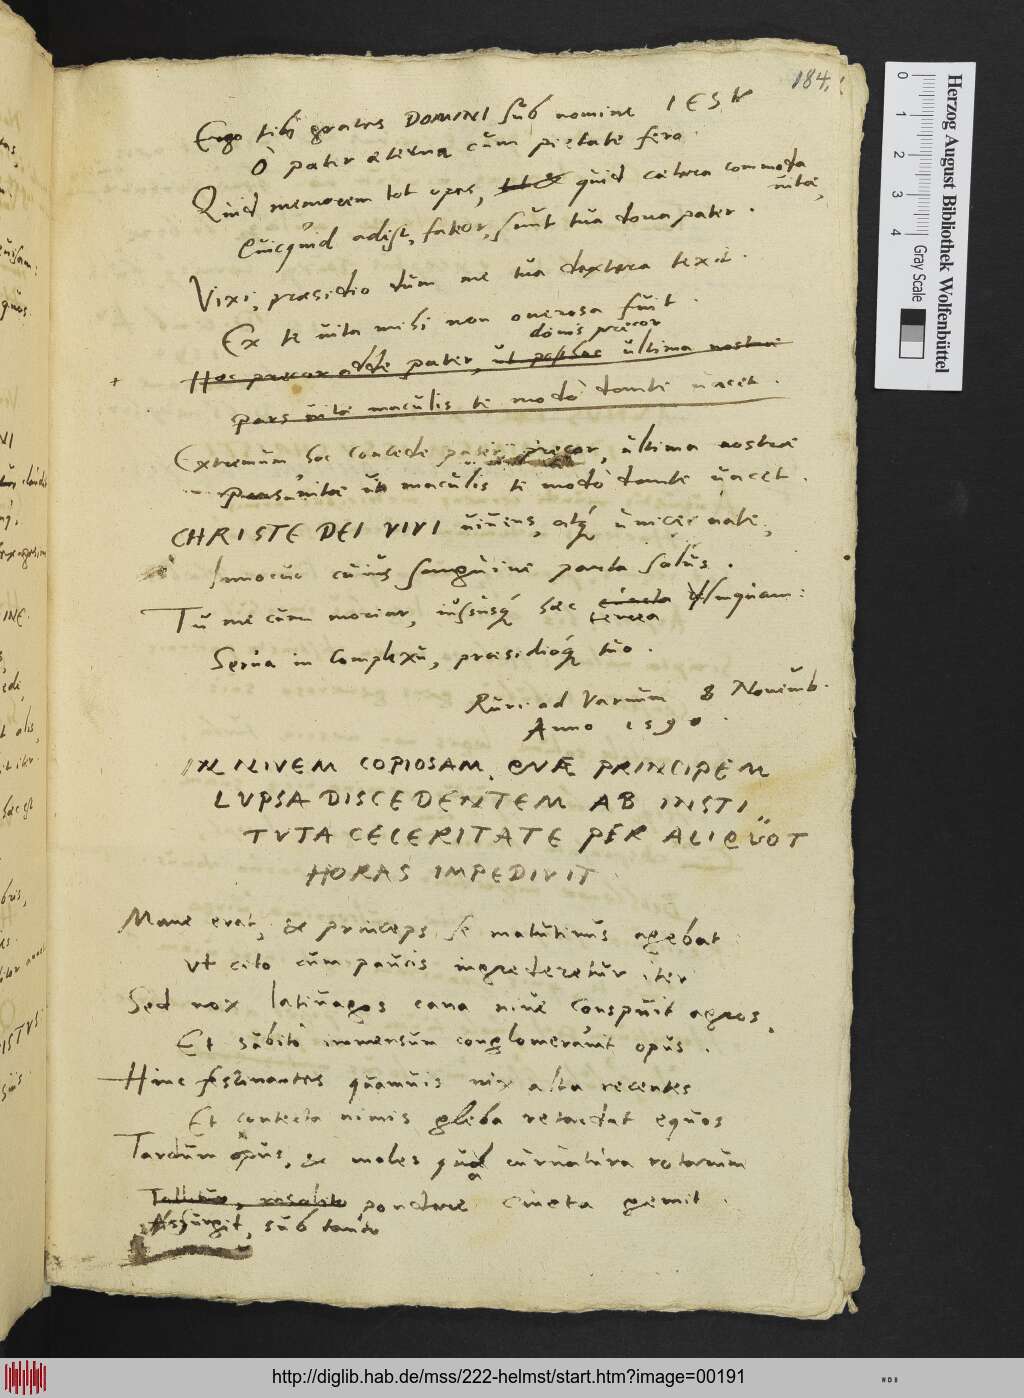 184.
Ergo tibi grates DOMINI sub nomine IESV
O pater æterne cum pietate fero.
Quid memorem tot opes, quid cætera commoda
uitæ,
Quicquid adest, fateor, sunt tua dona pater.
Vixi, præsidio dum me tua dextera texit.
Ex te uita mihi non onerosa fuit.
precor
Hoc precor adde pater, ut ultima nostræ
pars uitæ maculis te modo dante uacet.
Extremum hoc concede pater precor, ultima nostræ
pars uitæ ut maculis te modo dante uacet.
CHRISTE DEI VIVI uiuens, atq unice nate,
Innocuo cuius sanguine parta salus.
Tu me cum moriar, iussusq hæc linquam:
terrea
Serua in complexu, præsidioq tuo.
Ruri ad Varnum 8 Nouemb.
Anno 1590.
IN NIVEM COPIOSAM, QVÆ PRINCIPEM
LVPSA DISCEDENTEM AB INSTI
TVTA CELERITATE PER ALIQVOT
HORAS IMPEDIVIT
Mane erat, & princeps se matutinus agebat
Vt cito cum paucis ingrederetur iter
Sed nox latiuagos cana niue conspuit agros,
Et subito immensum conglomerauit opus.
Hinc festinantes quamuis nix alta recentes
Et contecta nimis gleba retardat equos
Tardum opus, & moles qua curuatura rotarum
Tollitur, pondere cincta gemit.
Assurgit, sub tanto
Herzog August Bibliothek Wolfenbüttel
0 1 2 3 4
Gray Scale
http://diglib.hab.de/mss/222-helmst/start.htm?image=00191